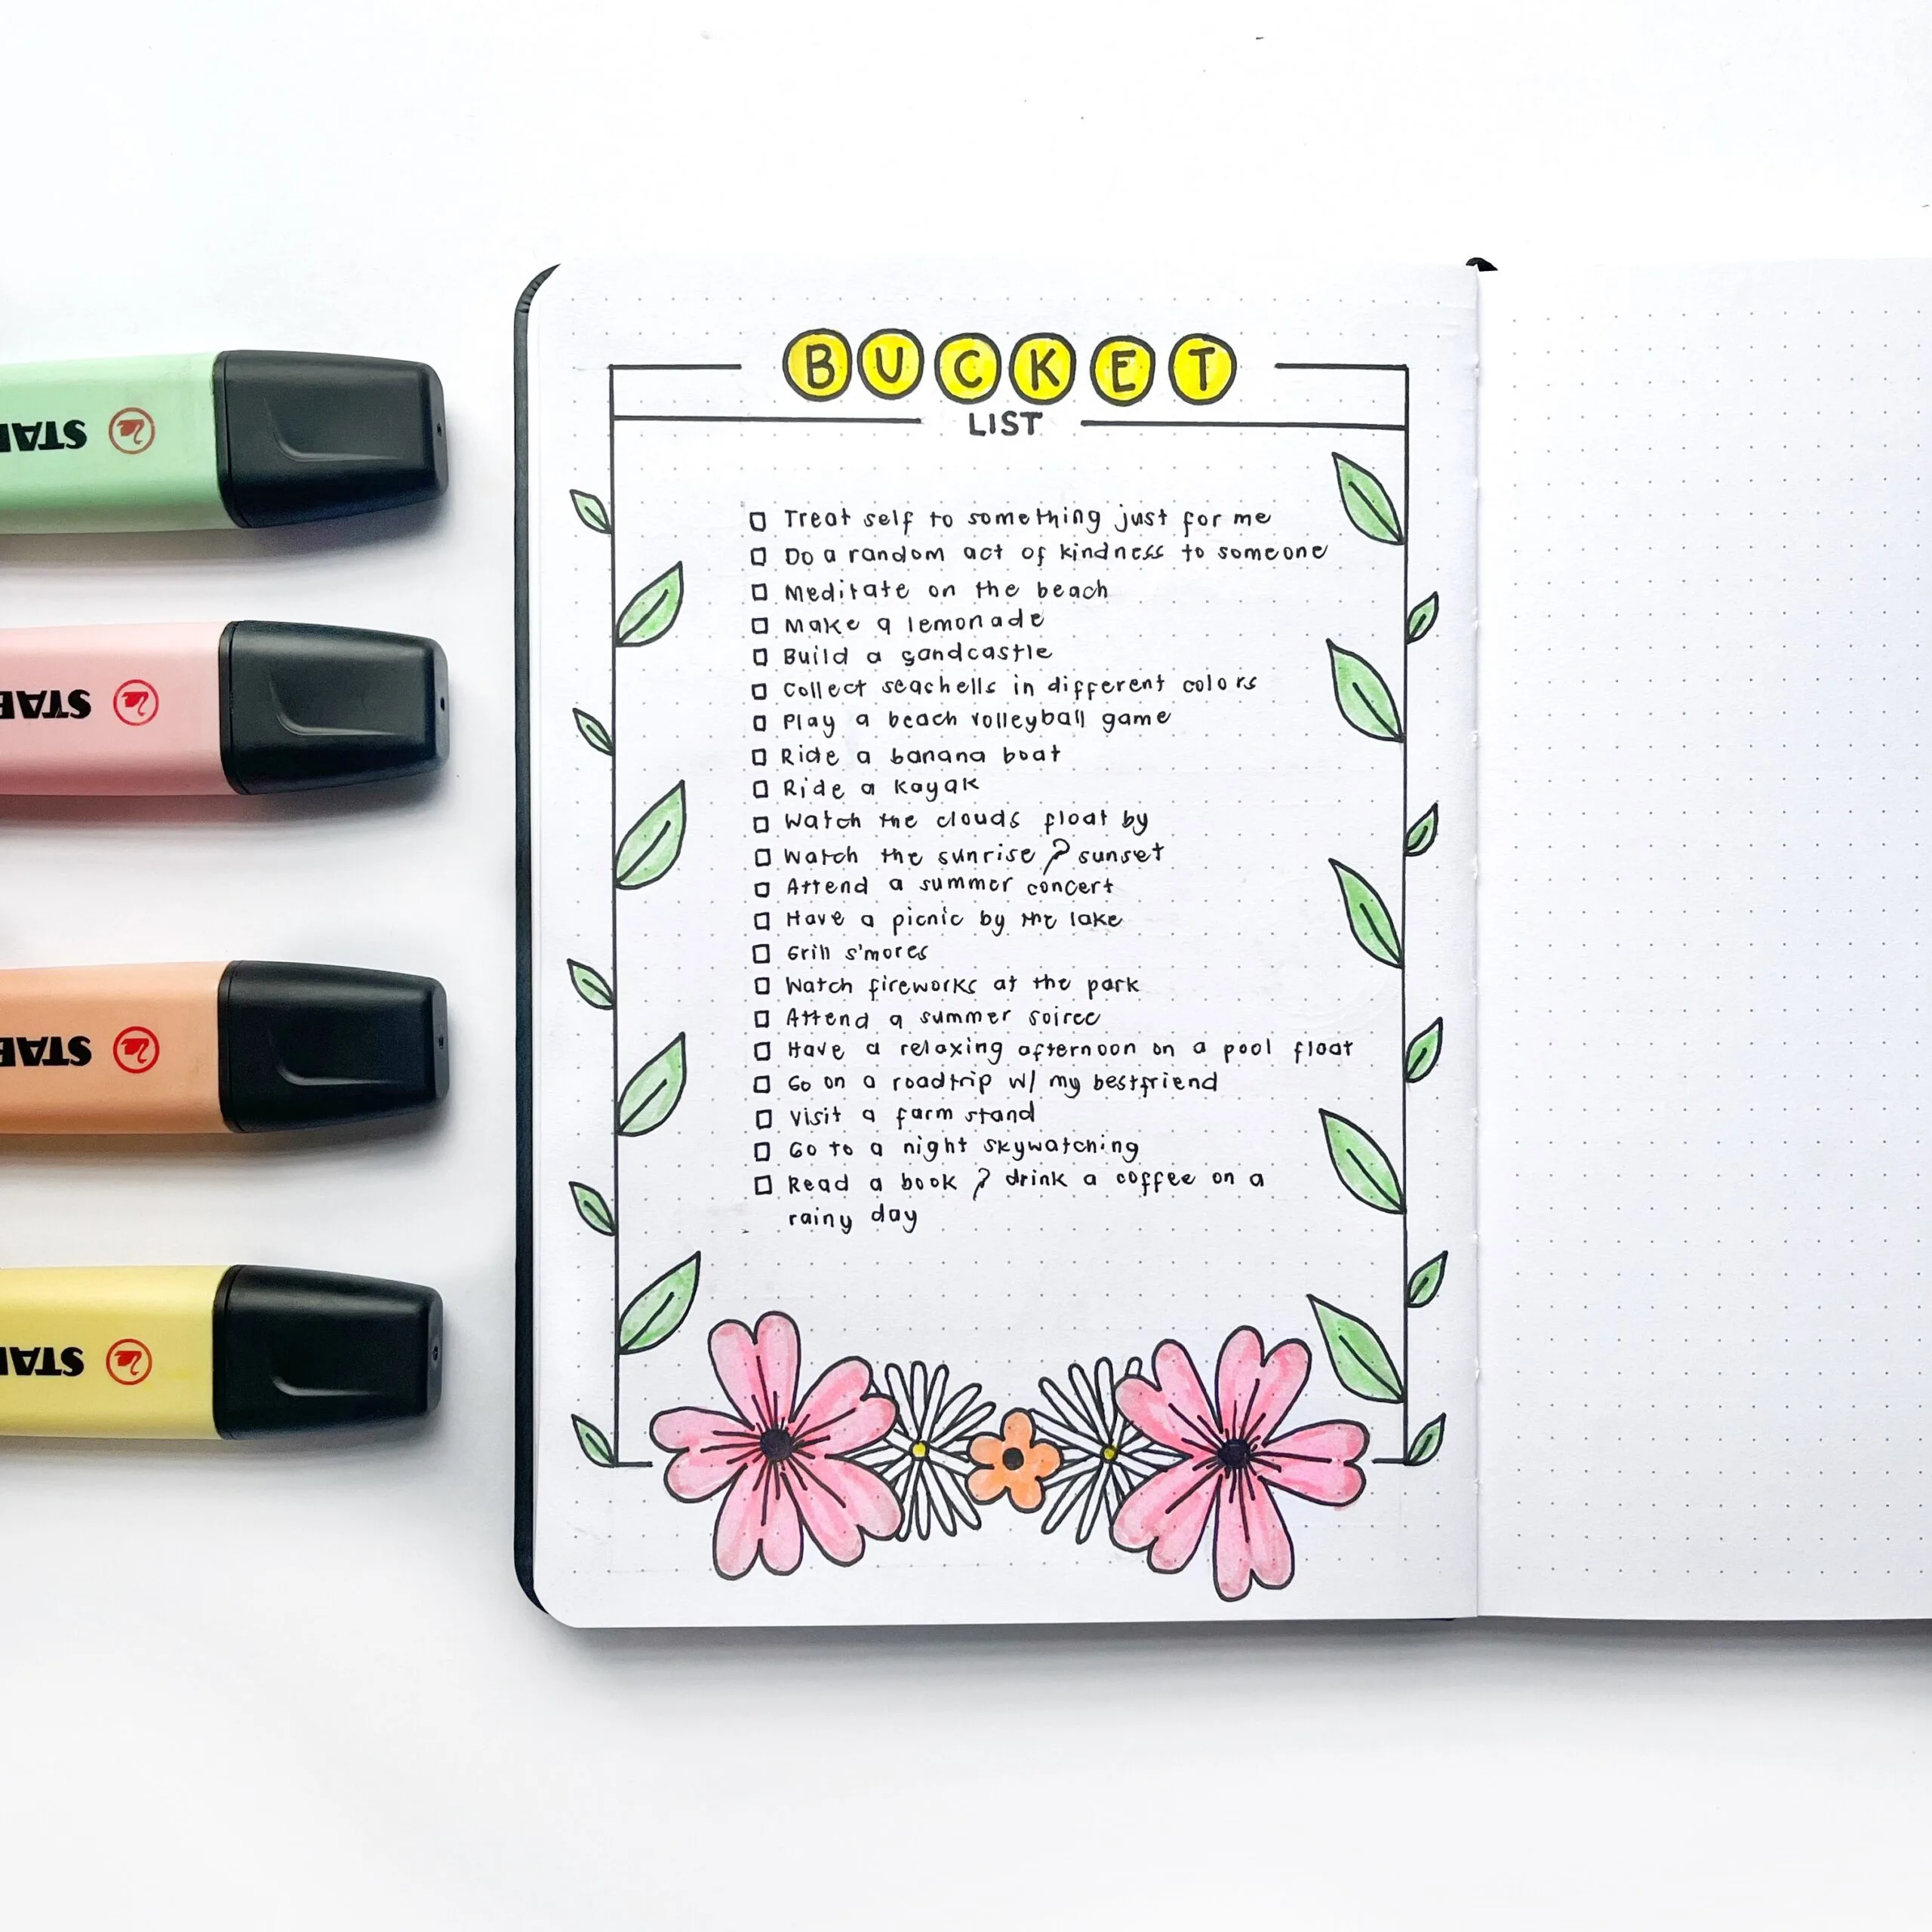 BUCKET
LIST
Treat self to something just for me
Do a random act of kindness to someone
Meditate on the beach
Make a lemonade
Build a sandcastle
Collect seachells in different colors
Play a beach volleyball game
Ride a banana boat
Ride a kayak
Watch the clouds float by
Watch the sunrise & sunset
Attend a summer concert
Have a picnic by the lake
Grill s'mores
Watch fireworks at the park
Attend a summer soiree
Have a relaxing afternoon on a pool float
Go on a roadtrip w/ my bestfriend
Visit a farm stand
Go to a night skywatching
Read a book & drink a coffee on a
rainy day
STAB
STAB
STAB
STAB